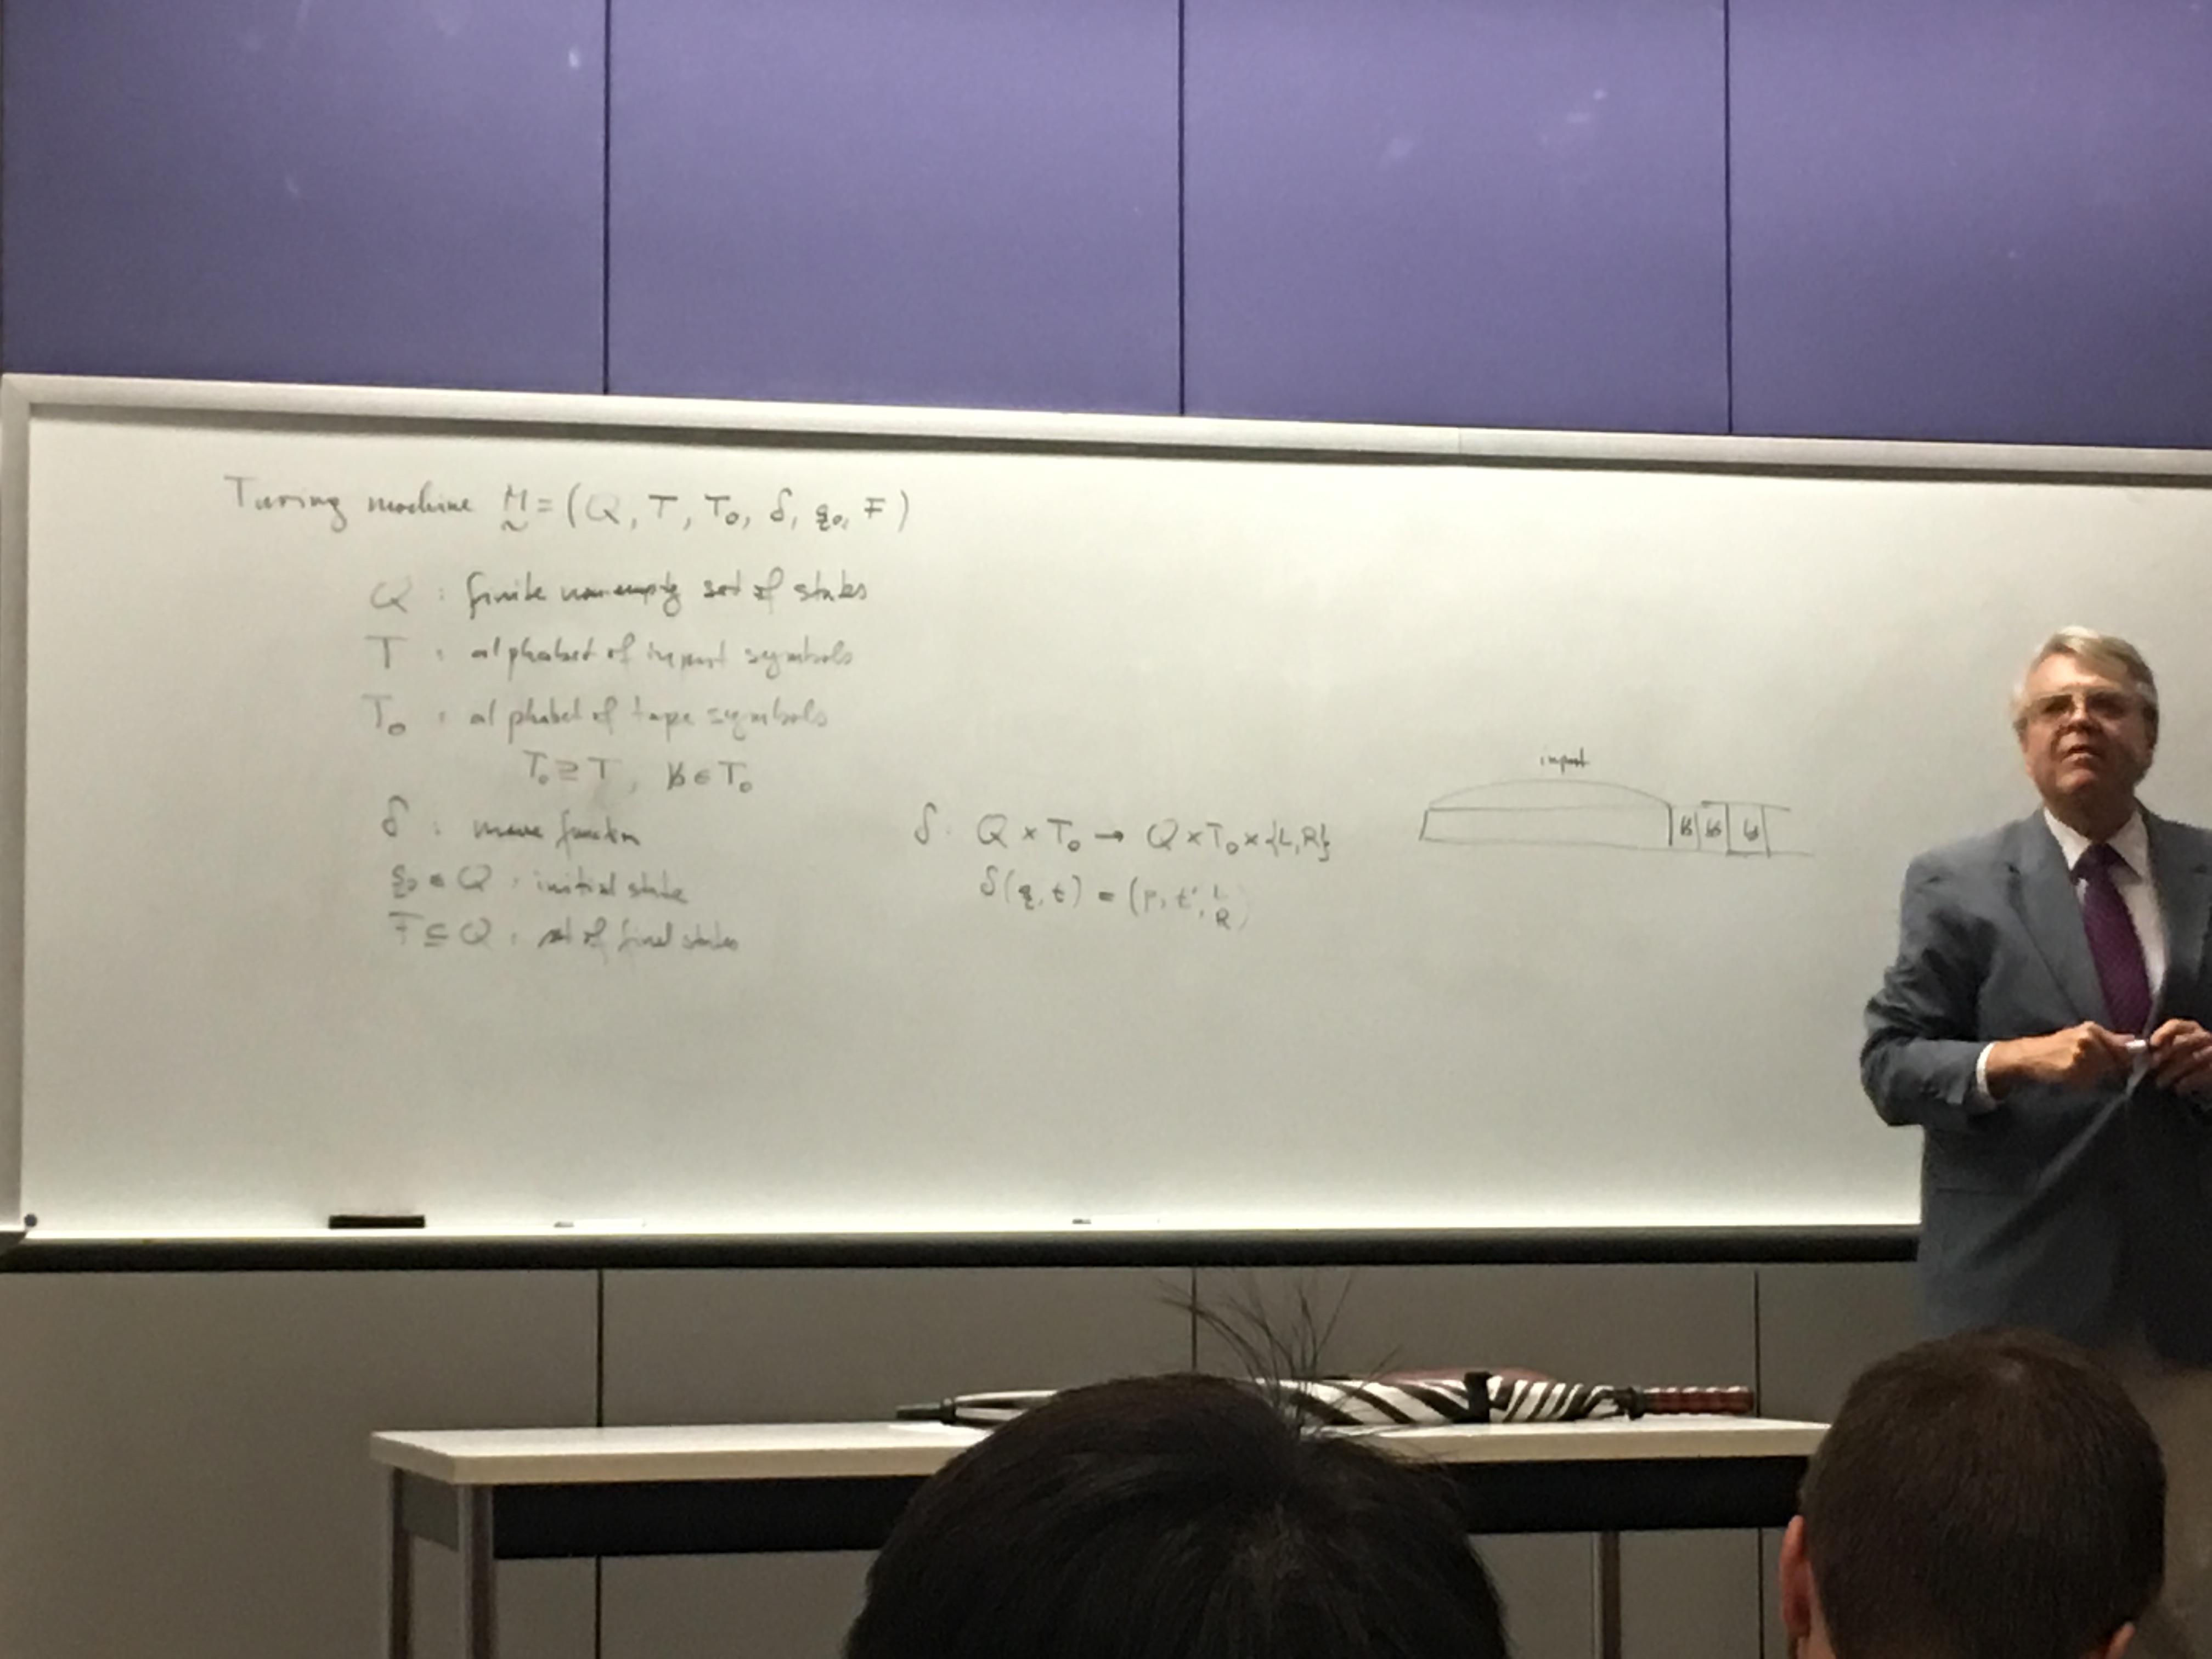 Turing machine M = (Q, T, T₀, δ, q₀, F)
Q : finite nonempty set of states
T : alphabet of input symbols
T₀ : alphabet of tape symbols
T₀ ⊇ T, ƀ ∈ T₀
δ : move function
q₀ ∈ Q : initial state
F ⊆ Q : set of final states
δ : Q × T₀ → Q × T₀ × {L, R}
δ(q, t) = (p, t', L
R)
input
ƀ ƀ ƀ